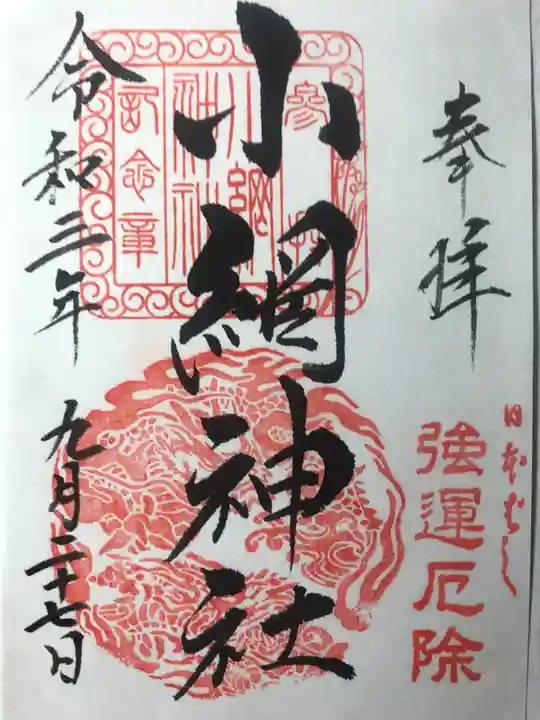 奉拝
日本ばし
強運厄除
参拝
小網神社
記念章
小網神社
令和三年
九月二十七日